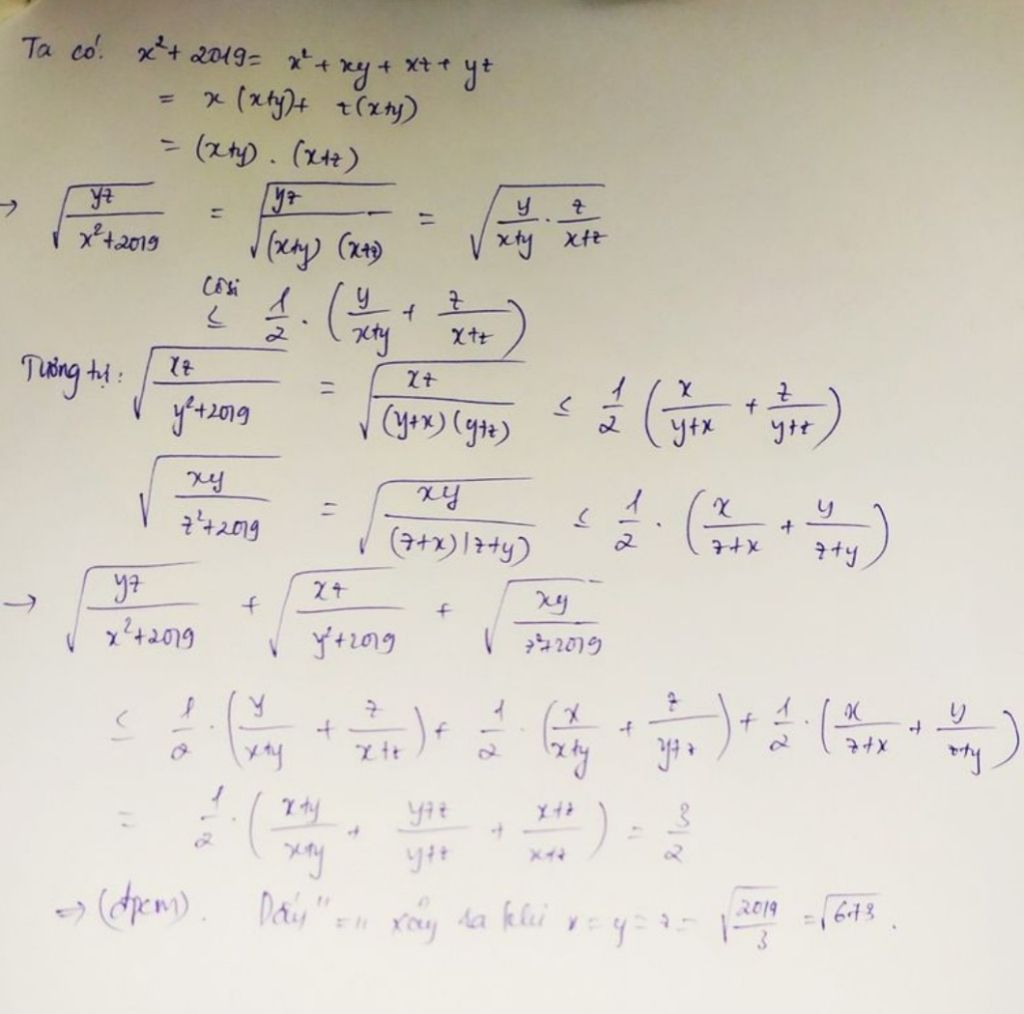 Ta có: x² + 2019 = x² + xy + xz + yz
= x (x+y) + z (x+y)
= (x+y) . (x+z)
→ √(yz/(x²+2019)) = √(yz/((x+y) (x+z))) = √(y/(x+y) . z/(x+z))
Côsi
≤ 1/2 . (y/(x+y) + z/(x+z))
Tương tự: √(xz/(y²+2019)) = √(xz/((y+x) (y+z))) ≤ 1/2 (x/(y+x) + z/(y+z))
√(xy/(z²+2019)) = √(xy/((z+x) (z+y))) ≤ 1/2 . (x/(z+x) + y/(z+y))
→ √(yz/(x²+2019)) + √(xz/(y²+2019)) + √(xy/(z²+2019))
≤ 1/2 . (y/(x+y) + z/(x+z)) + 1/2 . (x/(x+y) + z/(y+z)) + 1/2 . (x/(z+x) + y/(z+y))
= 1/2 . ((x+y)/(x+y) + (y+z)/(y+z) + (x+z)/(x+z)) = 3/2
⇒ (đpcm). Dấu "=" xảy ra khi x = y = z = √(2019/3) = √673.